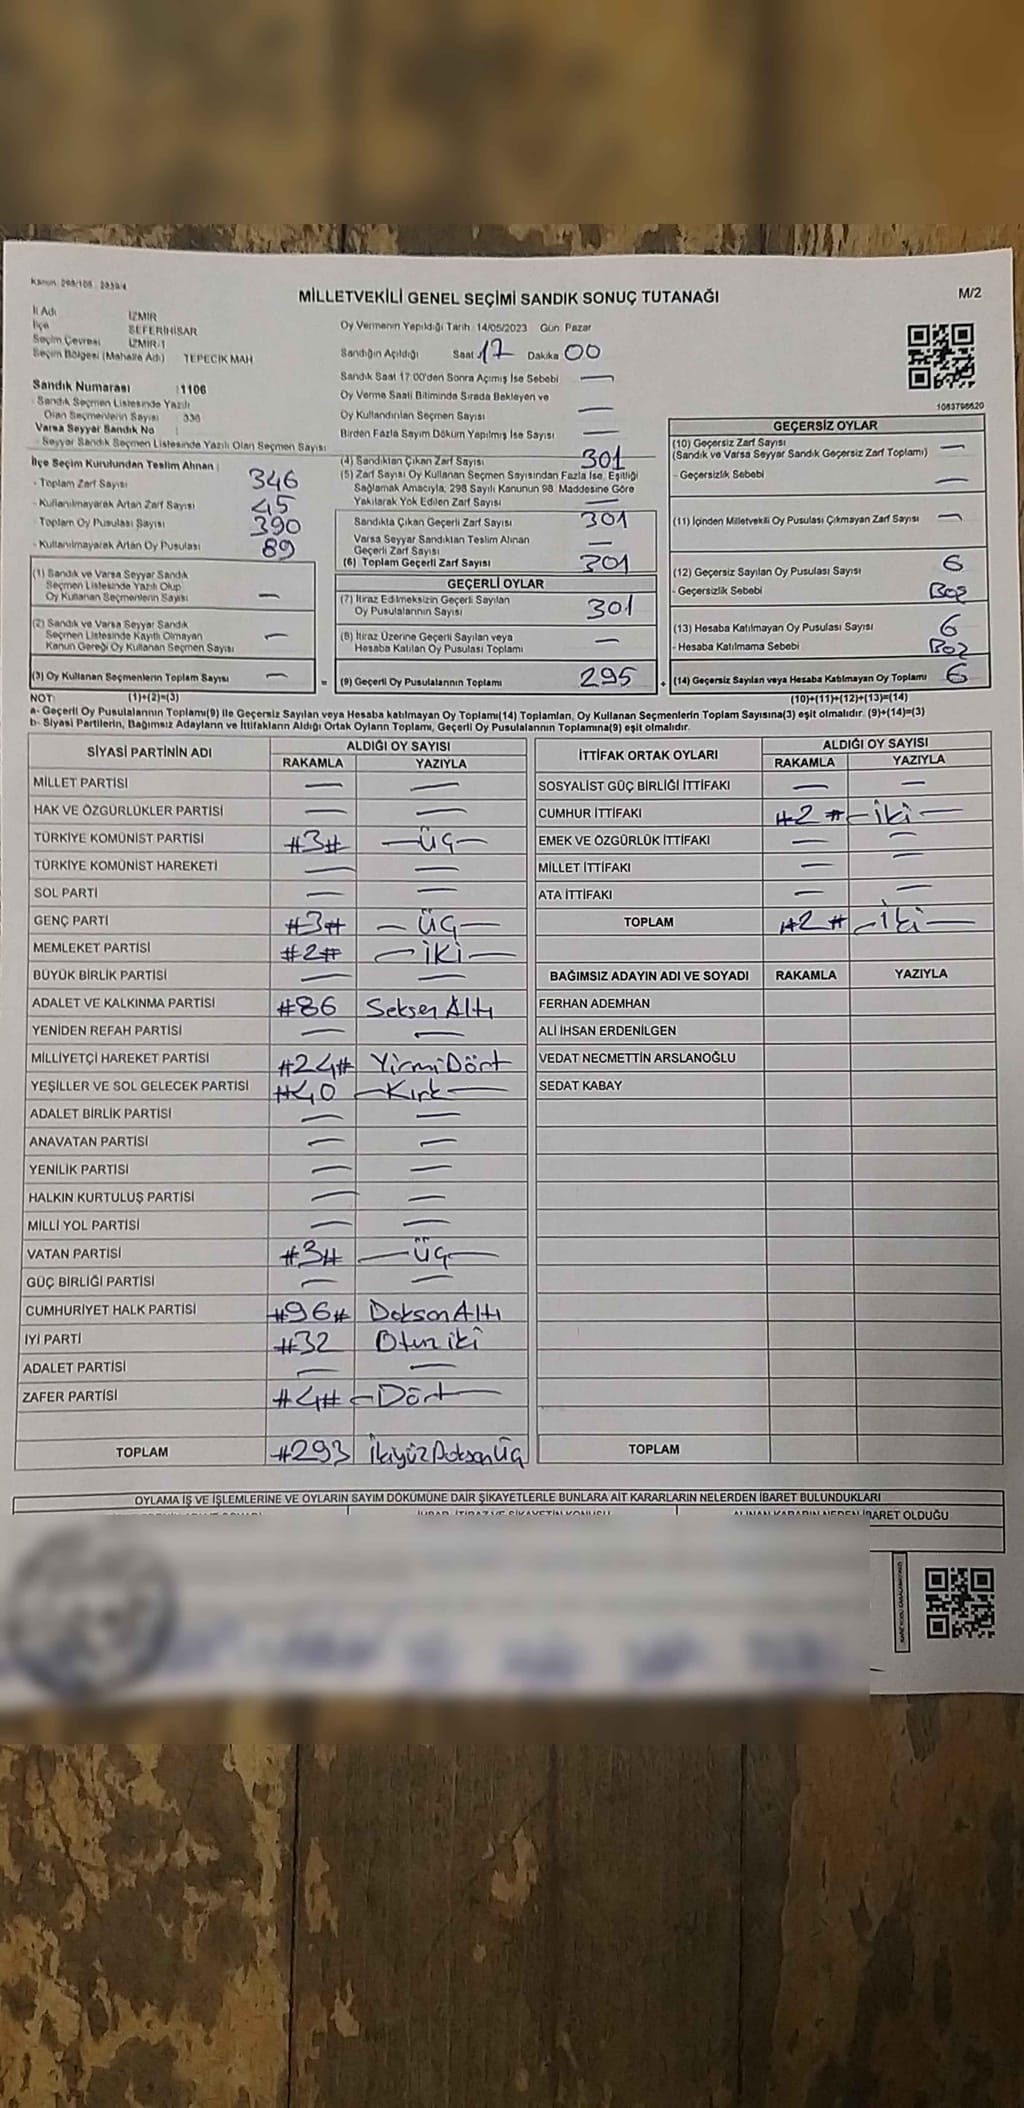 Kanun 298/105
MİLLETVEKİLİ GENEL SEÇİMİ SANDIK SONUÇ TUTANAĞI
M/2
İl Adı İZMİR
İlçe SEFERİHİSAR
Seçim Çevresi İZMİR-1
Seçim Bölgesi (Mahalle Adı) TEPECİK MAH
Sandık Numarası : 1106
Sandık Seçmen Listesinde Yazılı
Olan Seçmenlerin Sayısı 336
Varsa Seyyar Sandık No :
- Seyyar Sandık Seçmen Listesinde Yazılı Olan Seçmen Sayısı
İlçe Seçim Kurulundan Teslim Alınan
- Toplam Zarf Sayısı 346
- Kullanılmayarak Artan Zarf Sayısı 45
- Toplam Oy Pusulası Sayısı 390
- Kullanılmayarak Artan Oy Pusulası 89
(1) Sandık ve Varsa Seyyar Sandık
Seçmen Listesinde Yazılı Olup
Oy Kullanan Seçmenlerin Sayısı —
(2) Sandık ve Varsa Seyyar Sandık
Seçmen Listesinde Kayıtlı Olmayan
Kanun Gereği Oy Kullanan Seçmen Sayısı —
(3) Oy Kullanan Seçmenlerin Toplam Sayısı — =
Oy Vermenin Yapıldığı Tarih 14/05/2023 Gün Pazar
Sandığın Açıldığı Saat 17 Dakika 00
Sandık Saat 17:00'den Sonra Açımış İse Sebebi —
Oy Verme Saati Bitiminde Sırada Bekleyen ve
Oy Kullandırılan Seçmen Sayısı —
Birden Fazla Sayım Döküm Yapılmış İse Sayısı —
(4) Sandıktan Çıkan Zarf Sayısı 301
(5) Zarf Sayısı Oy Kullanan Seçmen Sayısından Fazla İse, Eşitliği
Sağlamak Amacıyla, 298 Sayılı Kanunun 98. Maddesine Göre
Yakılarak Yok Edilen Zarf Sayısı —
Sandıkta Çıkan Geçerli Zarf Sayısı 301
Varsa Seyyar Sandıktan Teslim Alınan
Geçerli Zarf Sayısı —
(6) Toplam Geçerli Zarf Sayısı 301
GEÇERLİ OYLAR
(7) İtiraz Edilmeksizin Geçerli Sayılan
Oy Pusulalarının Sayısı 301
(8) İtiraz Üzerine Geçerli Sayılan veya
Hesaba Katılan Oy Pusulası Toplamı —
(9) Geçerli Oy Pusulalarının Toplamı 295 +
1083796620
GEÇERSİZ OYLAR
(10) Geçersiz Zarf Sayısı —
(Sandık ve Varsa Seyyar Sandık Geçersiz Zarf Toplamı)
- Geçersizlik Sebebi —
(11) İçinden Milletvekili Oy Pusulası Çıkmayan Zarf Sayısı —
(12) Geçersiz Sayılan Oy Pusulası Sayısı 6
- Geçersizlik Sebebi Boş
(13) Hesaba Katılmayan Oy Pusulası Sayısı 6
- Hesaba Katılmama Sebebi Boş
(14) Geçersiz Sayılan veya Hesaba Katılmayan Oy Toplamı 6
NOT: (1)+(2)=(3) (10)+(11)+(12)+(13)=(14)
a- Geçerli Oy Pusulalarının Toplamı(9) ile Geçersiz Sayılan veya Hesaba katılmayan Oy Toplamı(14) Toplamları, Oy Kullanan Seçmenlerin Toplam Sayısına(3) eşit olmalıdır. (9)+(14)=(3)
b- Siyasi Partilerin, Bağımsız Adayların ve İttifakların Aldığı Ortak Oyların Toplamı, Geçerli Oy Pusulalarının Toplamına(9) eşit olmalıdır.
SİYASİ PARTİNİN ADI ALDIĞI OY SAYISI
RAKAMLA YAZIYLA
MİLLET PARTİSİ — —
HAK VE ÖZGÜRLÜKLER PARTİSİ — —
TÜRKİYE KOMÜNİST PARTİSİ #3# —ÜÇ—
TÜRKİYE KOMÜNİST HAREKETİ — —
SOL PARTİ — —
GENÇ PARTİ #3# —ÜÇ—
MEMLEKET PARTİSİ #2# —İKİ—
BÜYÜK BİRLİK PARTİSİ — —
ADALET VE KALKINMA PARTİSİ #86 Seksen Altı
YENİDEN REFAH PARTİSİ — —
MİLLİYETÇİ HAREKET PARTİSİ #24# YirmiDört
YEŞİLLER VE SOL GELECEK PARTİSİ #40 —Kırk—
ADALET BİRLİK PARTİSİ — —
ANAVATAN PARTİSİ — —
YENİLİK PARTİSİ — —
HALKIN KURTULUŞ PARTİSİ — —
MİLLİ YOL PARTİSİ — —
VATAN PARTİSİ #3# —ÜÇ—
GÜÇ BİRLİĞİ PARTİSİ — —
CUMHURİYET HALK PARTİSİ #96# Doksan Altı
İYİ PARTİ #32 Otuz iki
ADALET PARTİSİ — —
ZAFER PARTİSİ #4# —Dört—
TOPLAM #293 İkiyüzDoksanÜç
İTTİFAK ORTAK OYLARI ALDIĞI OY SAYISI
RAKAMLA YAZIYLA
SOSYALİST GÜÇ BİRLİĞİ İTTİFAKI — —
CUMHUR İTTİFAKI #2# —İki—
EMEK VE ÖZGÜRLÜK İTTİFAKI — —
MİLLET İTTİFAKI — —
ATA İTTİFAKI — —
TOPLAM #2# —İki—
BAĞIMSIZ ADAYIN ADI VE SOYADI RAKAMLA YAZIYLA
FERHAN ADEMHAN
ALİ İHSAN ERDENİLGEN
VEDAT NECMETTİN ARSLANOĞLU
SEDAT KABAY
TOPLAM
OYLAMA İŞ VE İŞLEMLERİNE VE OYLARIN SAYIM DÖKÜMÜNE DAİR ŞİKAYETLERLE BUNLARA AİT KARARLARIN NELERDEN İBARET BULUNDUKLARI
İHBAR, İTİRAZ VE ŞİKAYETİN KONUSU
ALINAN KARARIN NEDEN İBARET OLDUĞU